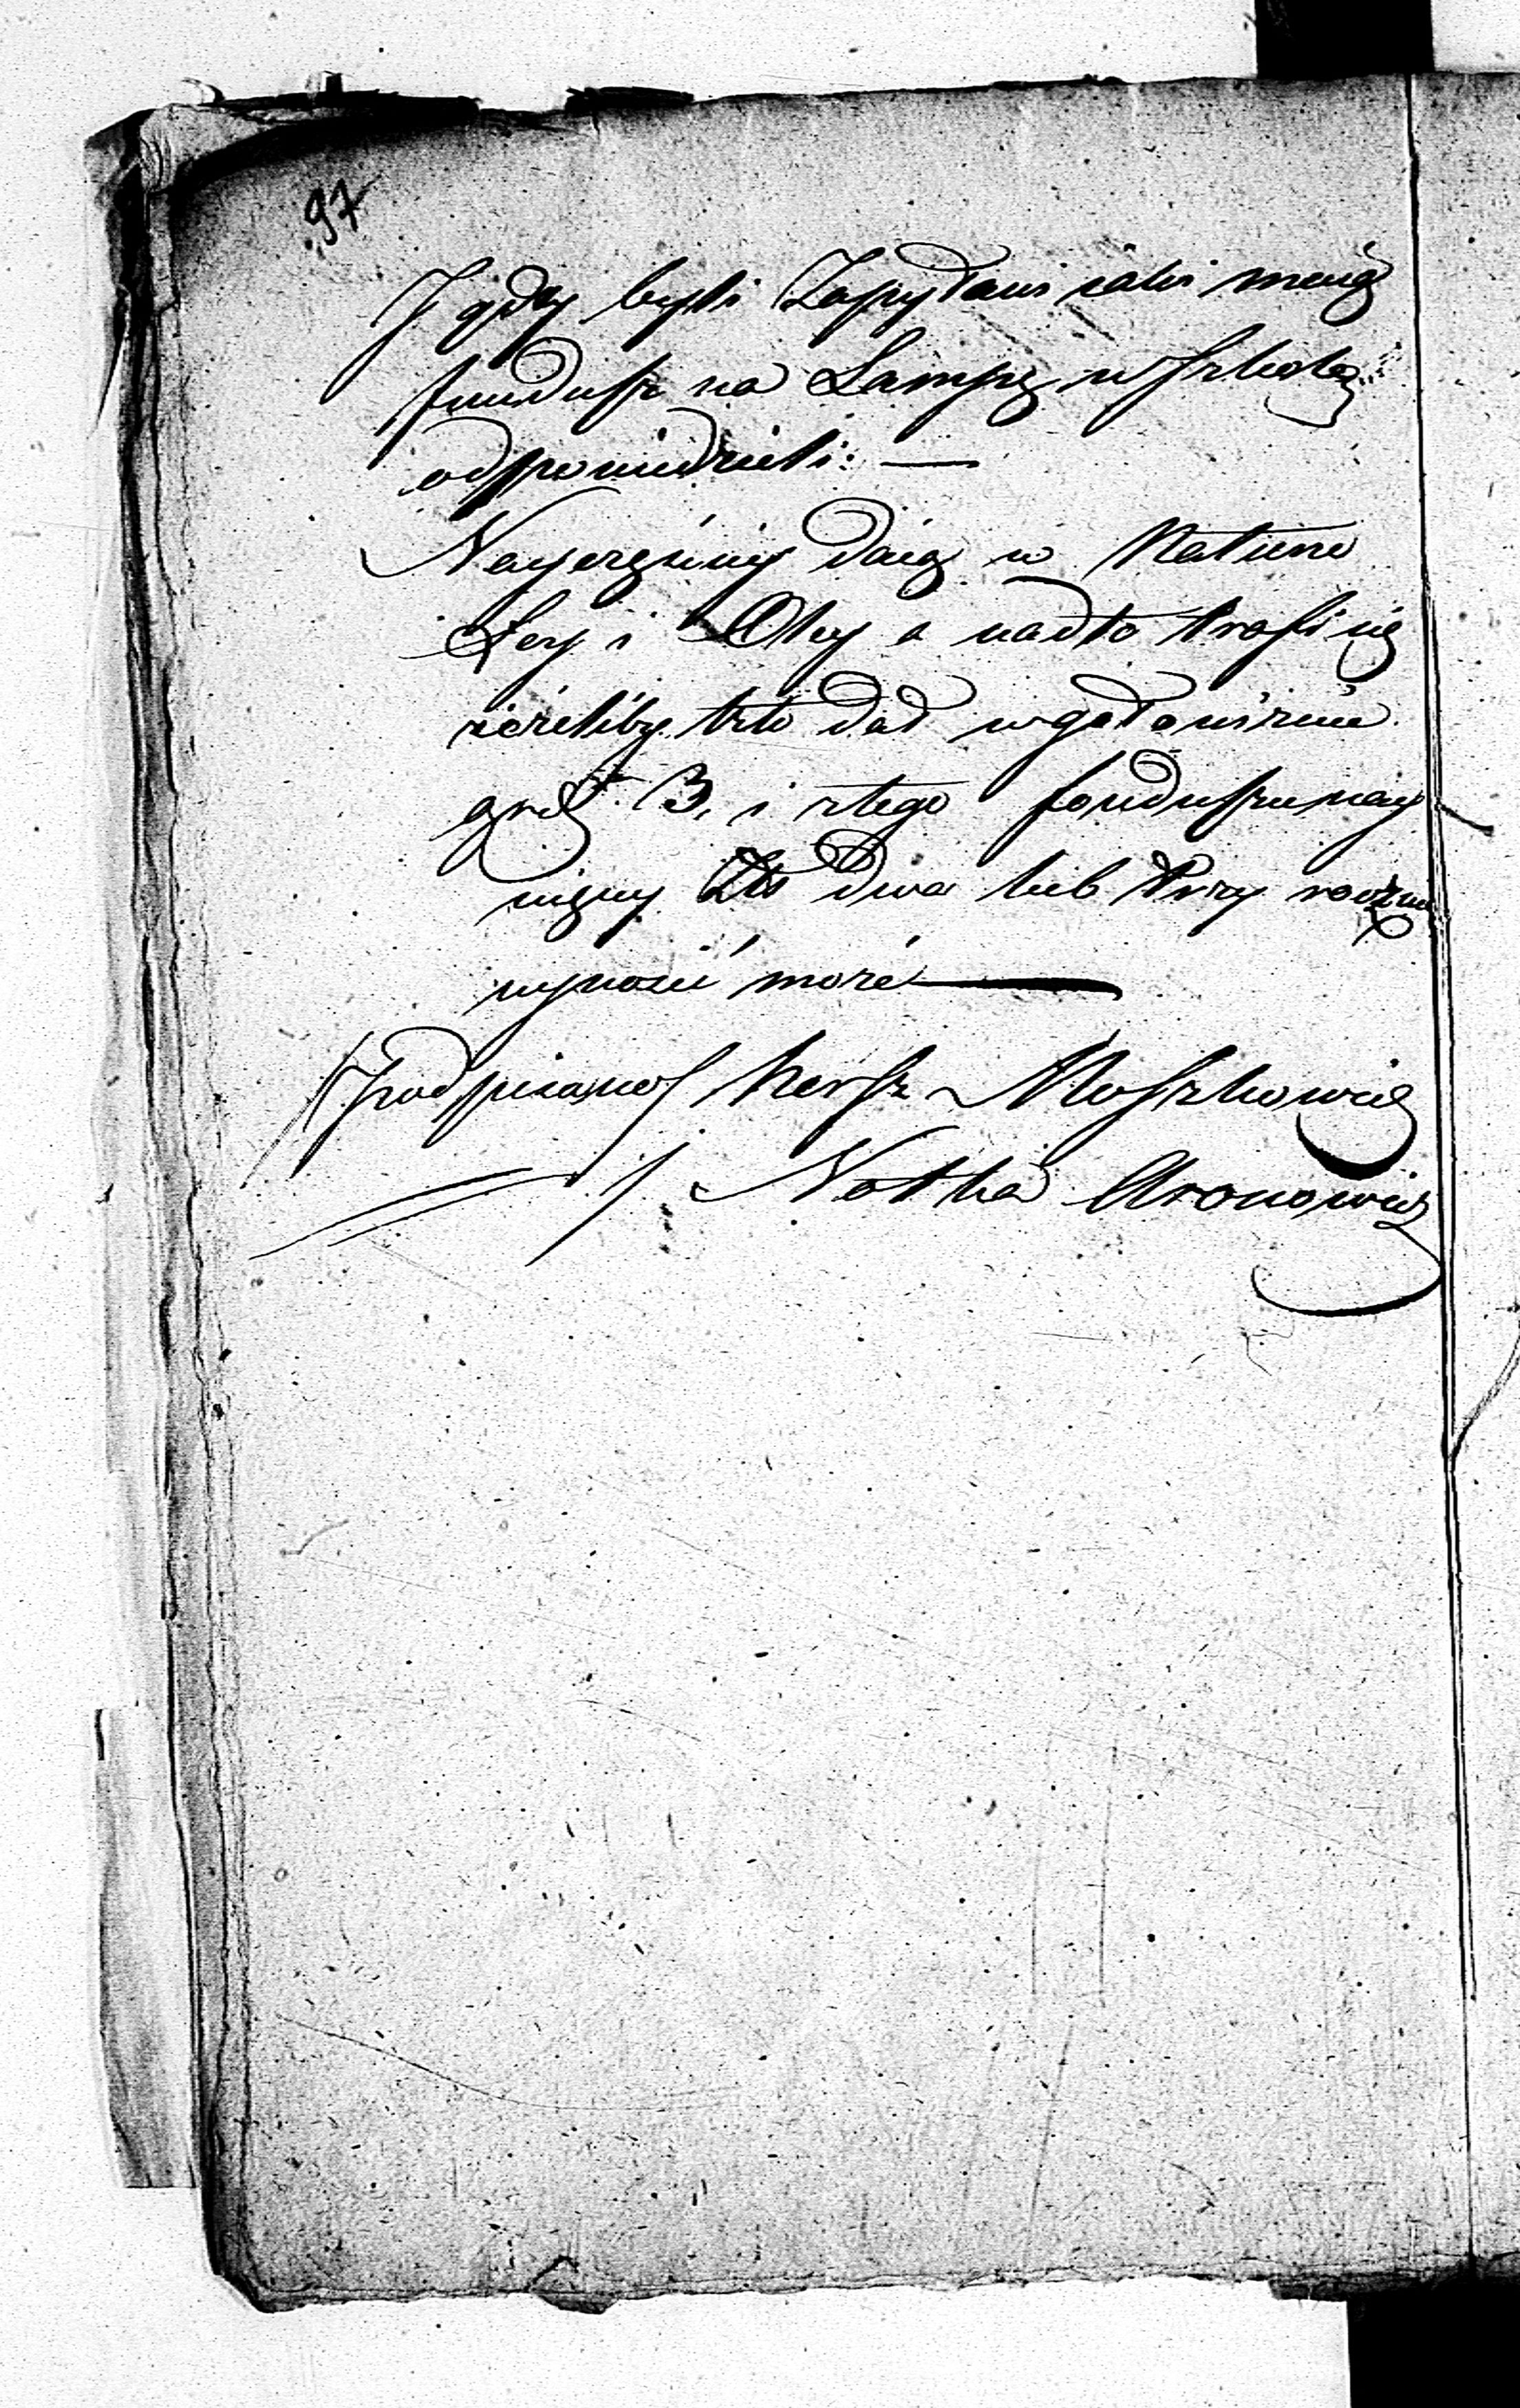 97
J gdy byli Zapytani iaki maią
fundusz na Lampę w Szkole
odpowiedzieli: —
Nayczęściey daią w Naturze
Łoy i Oley a nadto trafi się
ieżeliby kto dał w gotowiznie
3, i z tego fonduszu nay
więcey Zło dwa lub trzy rocznie
wynosić może —
(podpisano) Hersz Moszkowicz
Notka Aronowicz